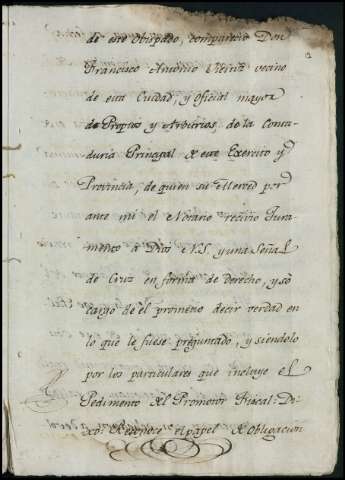 de este Obispado, comparecio Don
Francisco Antonio vecino
de esta Ciudad, y Oficial mayor
de Propios y Arbitrios de la Conta-
duria Principal de este Exercito y
Provincia, de quien su Merced por
ante mi el Notario recivio Jura-
mento a Dios N.S. y una Señal
de Cruz en forma de derecho, y so
cargo de el prometio decir verdad en
lo que le fuese preguntado, y siendolo
por los particulares que incluye el
Pedimento del Promotor Fiscal: Di-
xo: Reconoce el papel de Obligacion